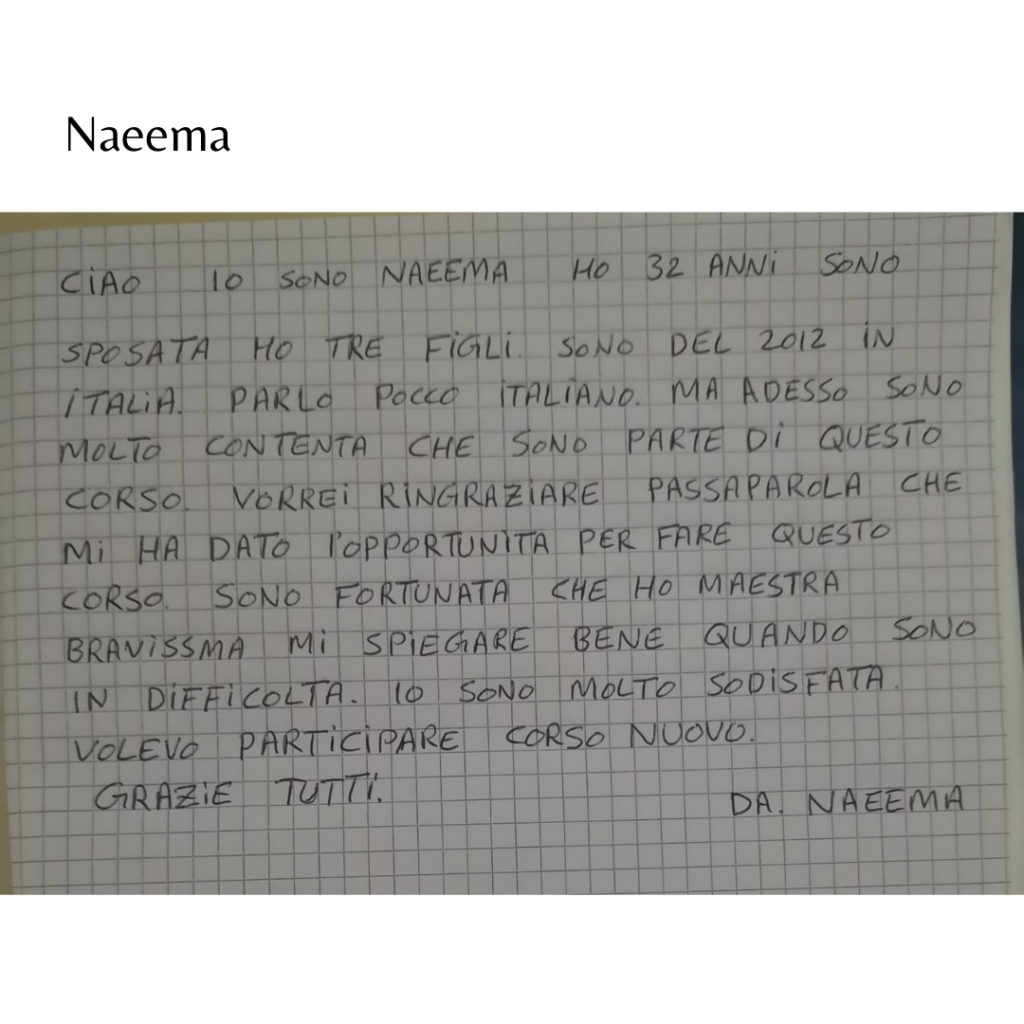 Naeema
CIAO IO SONO NAEEMA HO 32 ANNI SONO
SPOSATA HO TRE FIGLI. SONO DEL 2012 IN
ITALIA. PARLO POCCO ITALIANO. MA ADESSO SONO
MOLTO CONTENTA CHE SONO PARTE DI QUESTO
CORSO. VORREI RINGRAZIARE PASSAPAROLA CHE
MI HA DATO l'OPPORTUNITA PER FARE QUESTO
CORSO. SONO FORTUNATA CHE HO MAESTRA
BRAVISSMA MI SPIEGARE BENE QUANDO SONO
IN DIFFICOLTA. IO SONO MOLTO SODISFATA.
VOLEVO PARTICIPARE CORSO NUOVO.
GRAZIE TUTTI.
DA. NAEEMA